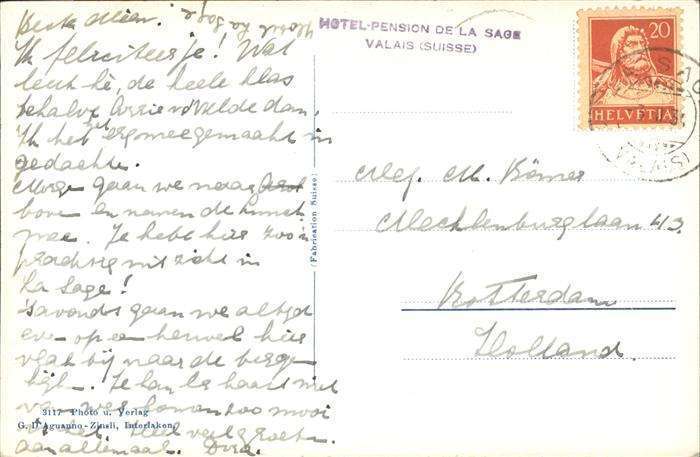 Beste Mien.
Ik feliciteer je! Wat
leuk hè, de heele klas
behalve Corrie v/d Velde dan.
Ik heb het erg meegemaakt in
gedachte.
Morgen gaan we naar
boven en nemen de lunch
mee. Je hebt hier zoo'n
prachtig uitzicht in
La Sage!
's avonds gaan we altijd
even op een heuvel hier
vlak bij naar de bergen
kijken. Je kan er haast niet
van weg komen zoo mooi
is het. Heel veel groeten
aan allemaal. Dora.
Hoord La Sage,
HOTEL-PENSION DE LA SAGE
VALAIS (SUISSE)
20
HELVETIA
VALAIS
(Fabrication Suisse)
Mej. M. Römer
Mecklenburglaan 43.
Rotterdam
Holland.
3117 Photo u. Verlag
G. D'Aguanno-Zinsli, Interlaken.